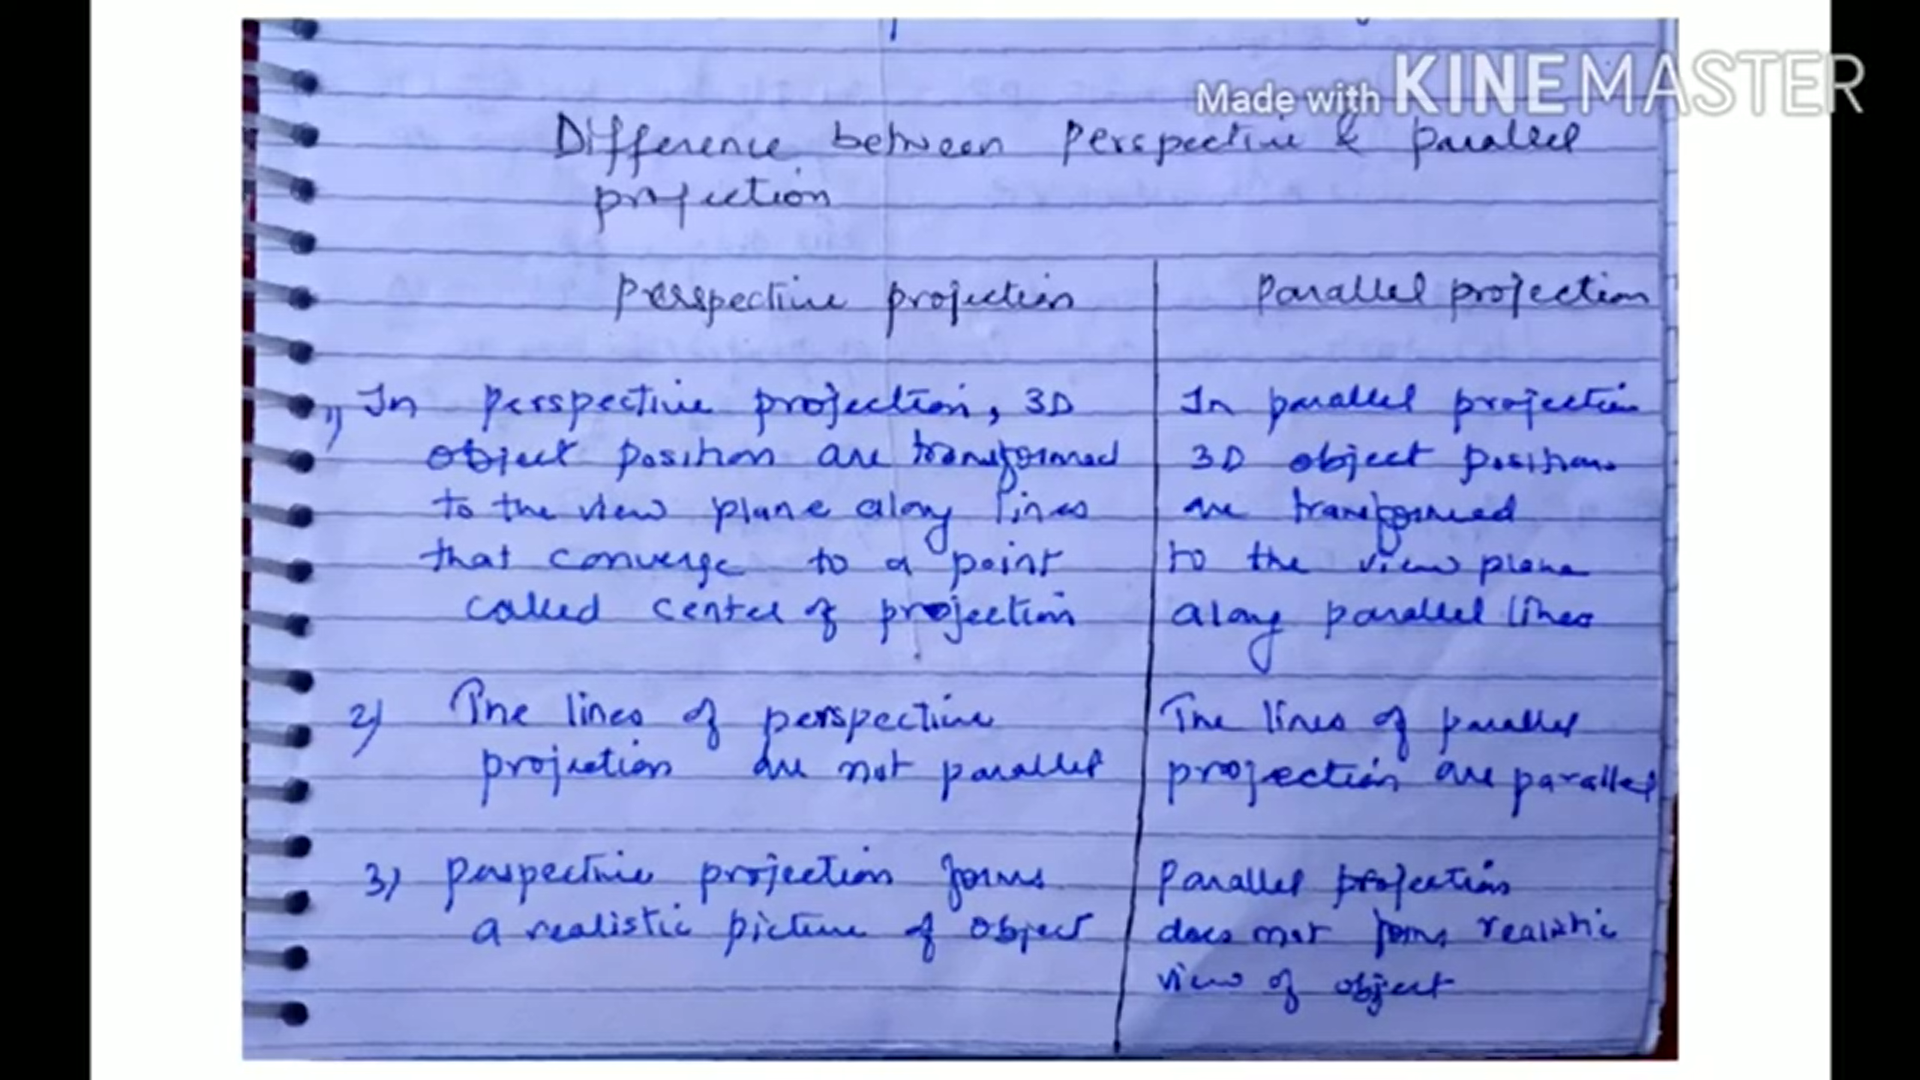 Made with KINEMASTER
Difference between perspective & parallel
projection
Perspective projection
Parallel projection
1) In perspective projection, 3D
object position are transformed
to the view plane along lines
that converge to a point
called center of projection
In parallel projection
3D object position
are transformed
to the view plane
along parallel lines
2) The lines of perspective
projection are not parallel
The lines of parallel
projection are parallel
3) perspective projection forms
a realistic picture of object
Parallel projection
does not forms realistic
view of object